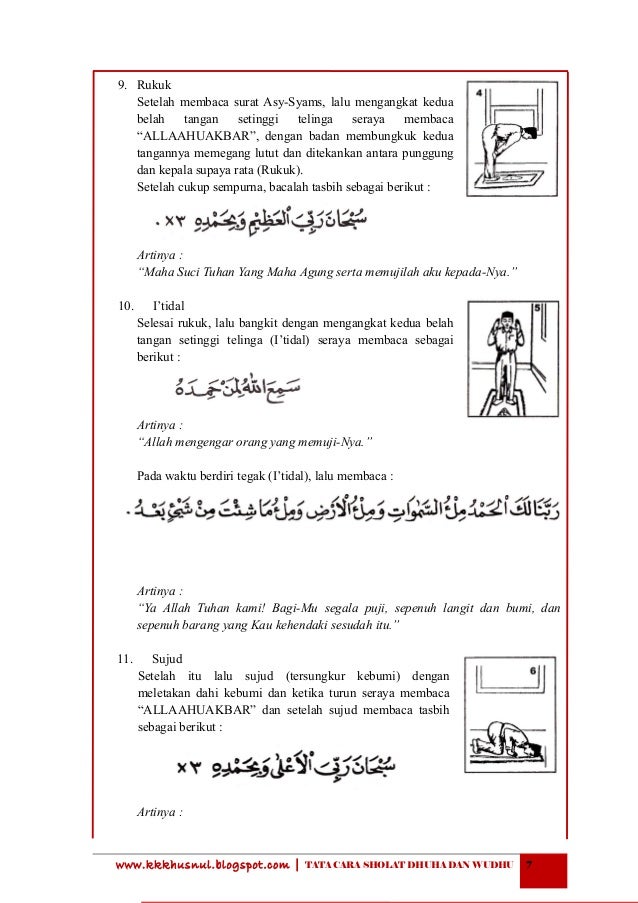 9. Rukuk
Setelah membaca surat Asy-Syams, lalu mengangkat kedua
belah tangan setinggi telinga seraya membaca
“ALLAAHUAKBAR”, dengan badan membungkuk kedua
tangannya memegang lutut dan ditekankan antara punggung
dan kepala supaya rata (Rukuk).
Setelah cukup sempurna, bacalah tasbih sebagai berikut :
4
سُبْحَانَ رَبِّيَ الْعَظِيْمِ وَبِحَمْدِهِ ×٣ .
Artinya :
“Maha Suci Tuhan Yang Maha Agung serta memujilah aku kepada-Nya.”
10. I’tidal
Selesai rukuk, lalu bangkit dengan mengangkat kedua belah
tangan setinggi telinga (I’tidal) seraya membaca sebagai
berikut :
5
سَمِعَ اللهُ لِمَنْ حَمِدَهُ
Artinya :
“Allah mengengar orang yang memuji-Nya.”
Pada waktu berdiri tegak (I’tidal), lalu membaca :
رَبَّنَا لَكَ الْحَمْدُ مِلْءُ السَّمٰوَاتِ وَمِلْءُ الْاَرْضِ وَمِلْءُ مَا شِئْتَ مِنْ شَيْئٍ بَعْدُ .
Artinya :
“Ya Allah Tuhan kami! Bagi-Mu segala puji, sepenuh langit dan bumi, dan
sepenuh barang yang Kau kehendaki sesudah itu.”
11. Sujud
Setelah itu lalu sujud (tersungkur kebumi) dengan
meletakan dahi kebumi dan ketika turun seraya membaca
“ALLAAHUAKBAR” dan setelah sujud membaca tasbih
sebagai berikut :
6
سُبْحَانَ رَبِّيَ الْاَعْلٰى وَبِحَمْدِهِ ×٣
Artinya :
www.kkkhusnul.blogspot.com | TATA CARA SHOLAT DHUHA DAN WUDHU 7